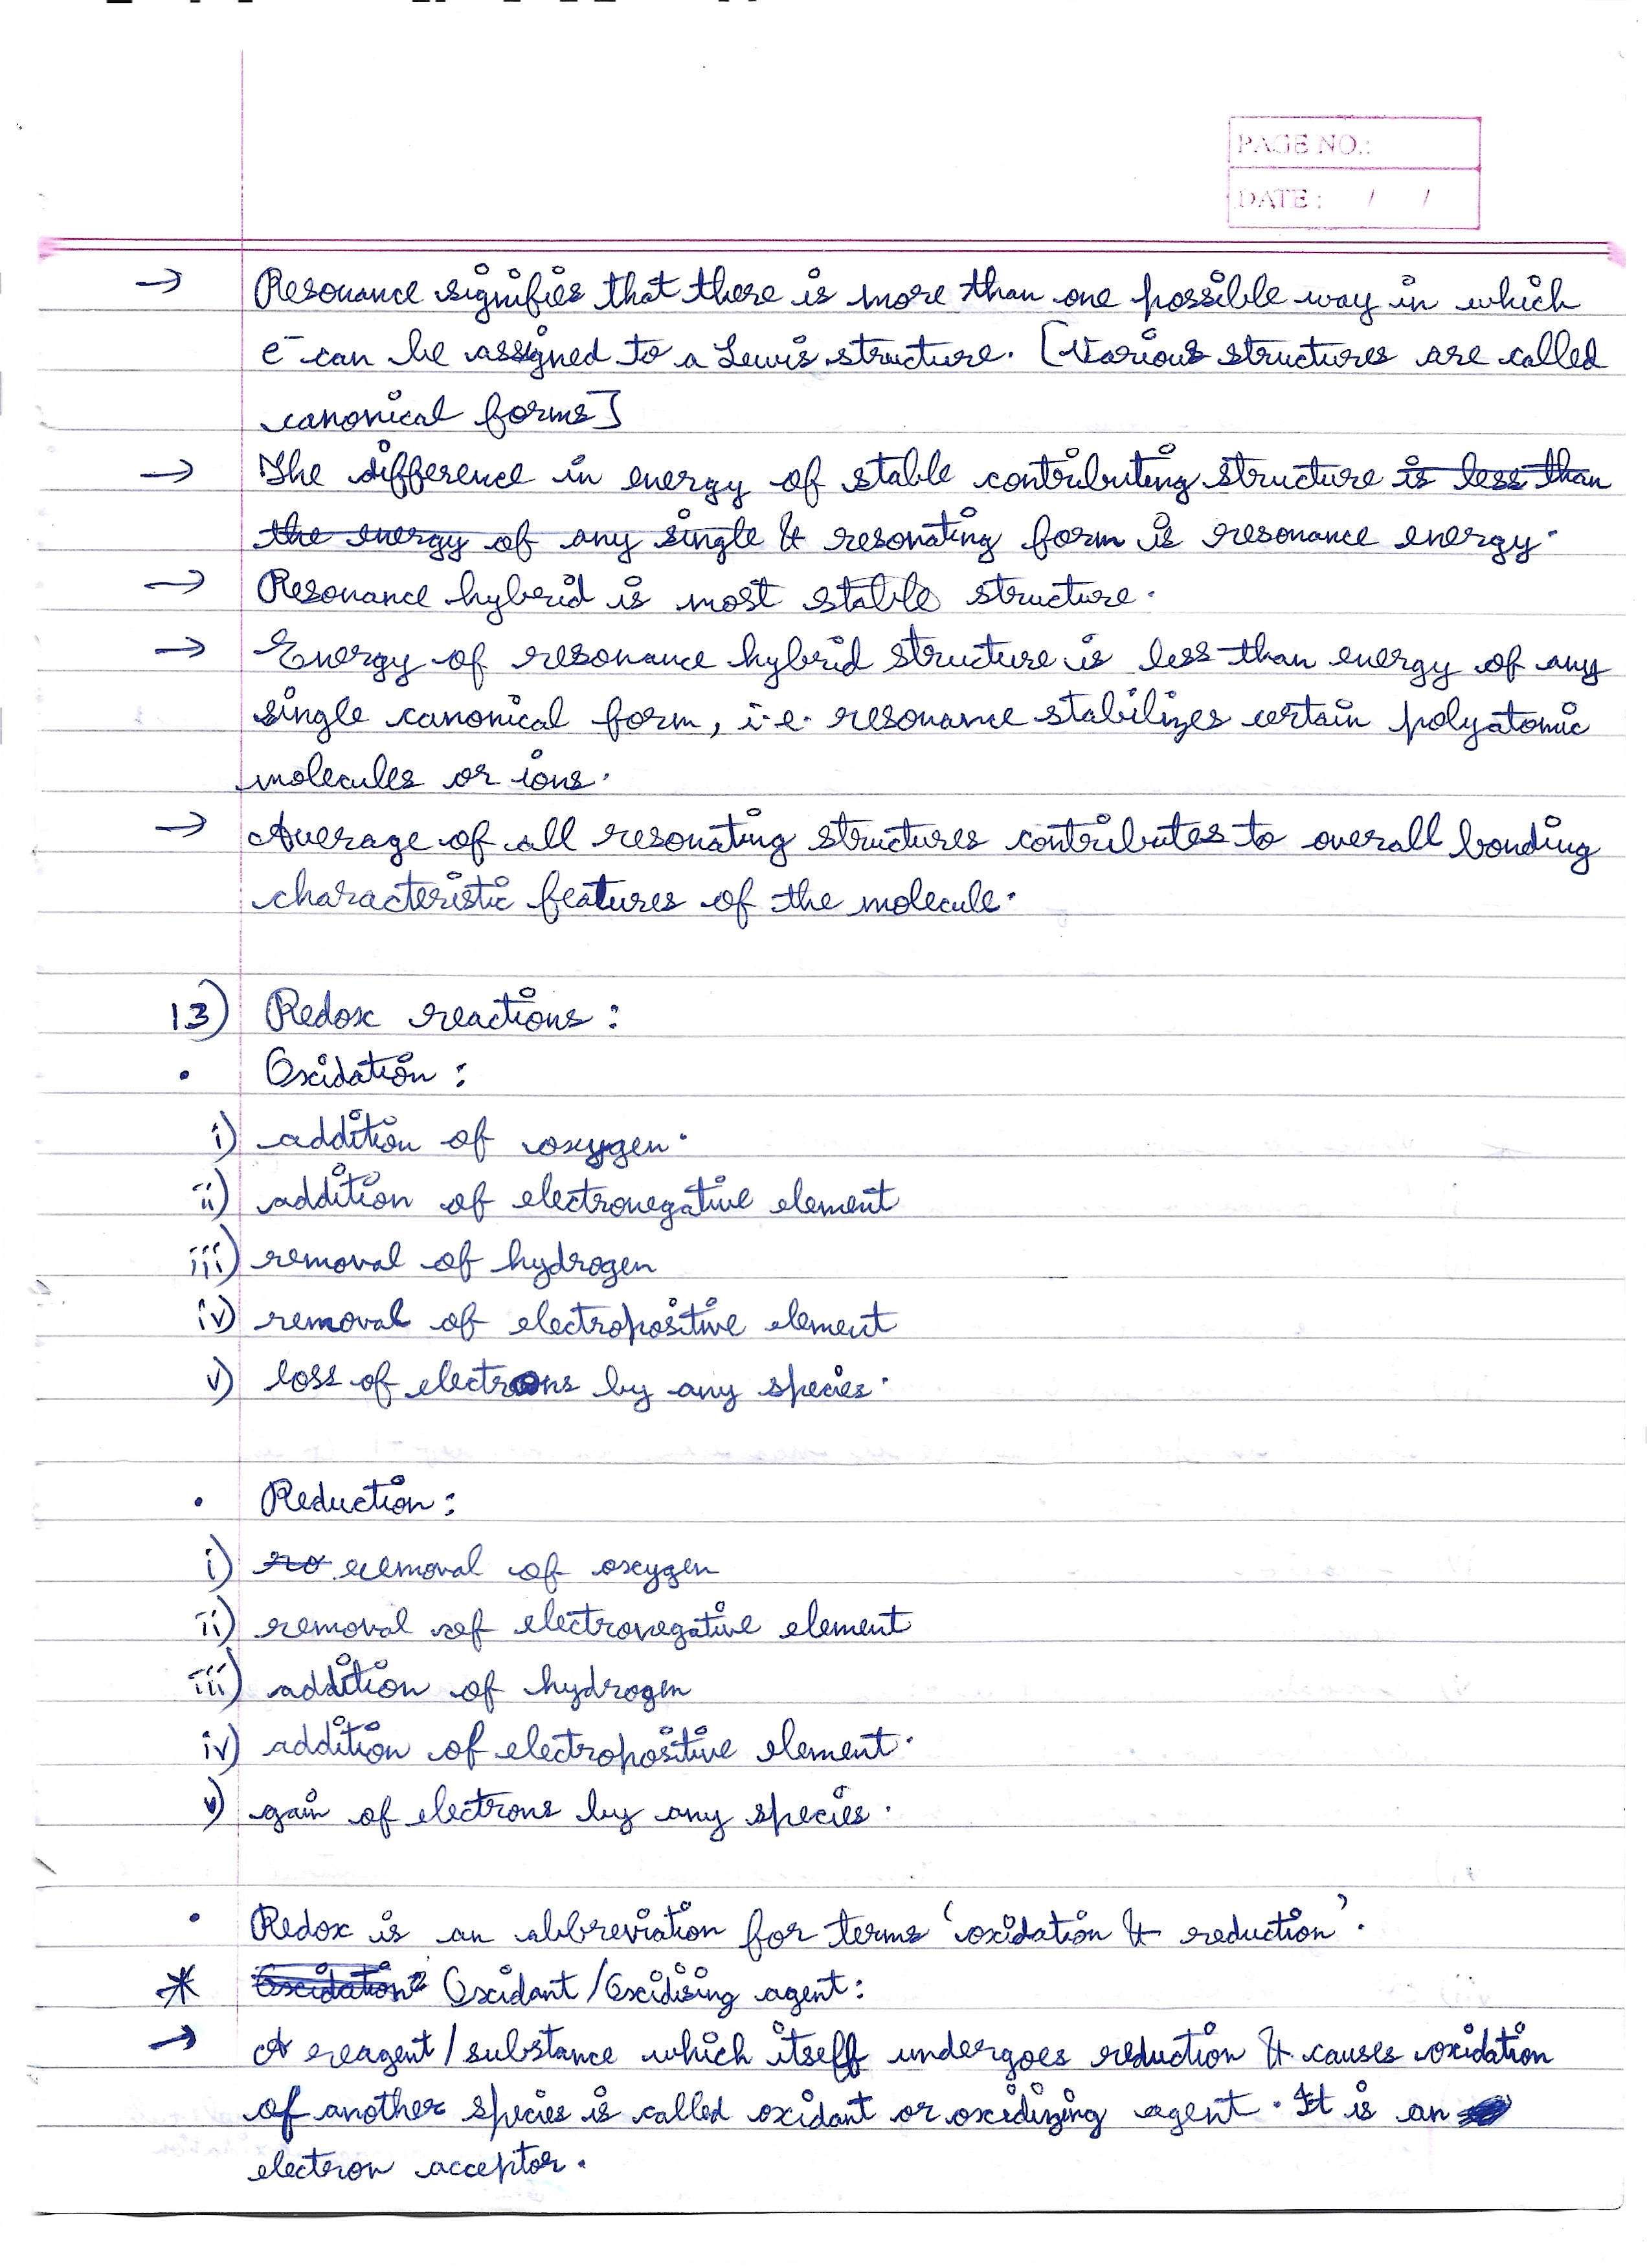 PAGE NO.:
DATE : / /
→ Resonance signifies that there is more than one possible way in which
e⁻ can be assigned to a Lewis structure. [Various structures are called
canonical forms]
→ The difference in energy of stable contributing structure ~~is less than~~
~~the energy of any single~~ & resonating form is resonance energy.
→ Resonance hybrid is most stable structure.
→ Energy of resonance hybrid structure is less than energy of any
single canonical form, i.e. resonance stabilizes certain polyatomic
molecules or ions.
→ Average of all resonating structures contributes to overall bonding
characteristic features of the molecule.
13) Redox reactions :
• Oxidation :
i) addition of oxygen.
ii) addition of electronegative element
iii) removal of hydrogen
iv) removal of electropositive element
v) loss of electrons by any species.
• Reduction :
i) ~~ro~~ removal of oxygen
ii) removal of electronegative element
iii) addition of hydrogen
iv) addition of electropositive element.
v) gain of electrons by any species.
• Redox is an abbreviation for terms 'oxidation & reduction'.
* ~~Oxidation~~ Oxidant / Oxidising agent :
→ A reagent / substance which itself undergoes reduction & causes oxidation
of another species is called oxidant or oxidizing agent. It is an
electron acceptor.